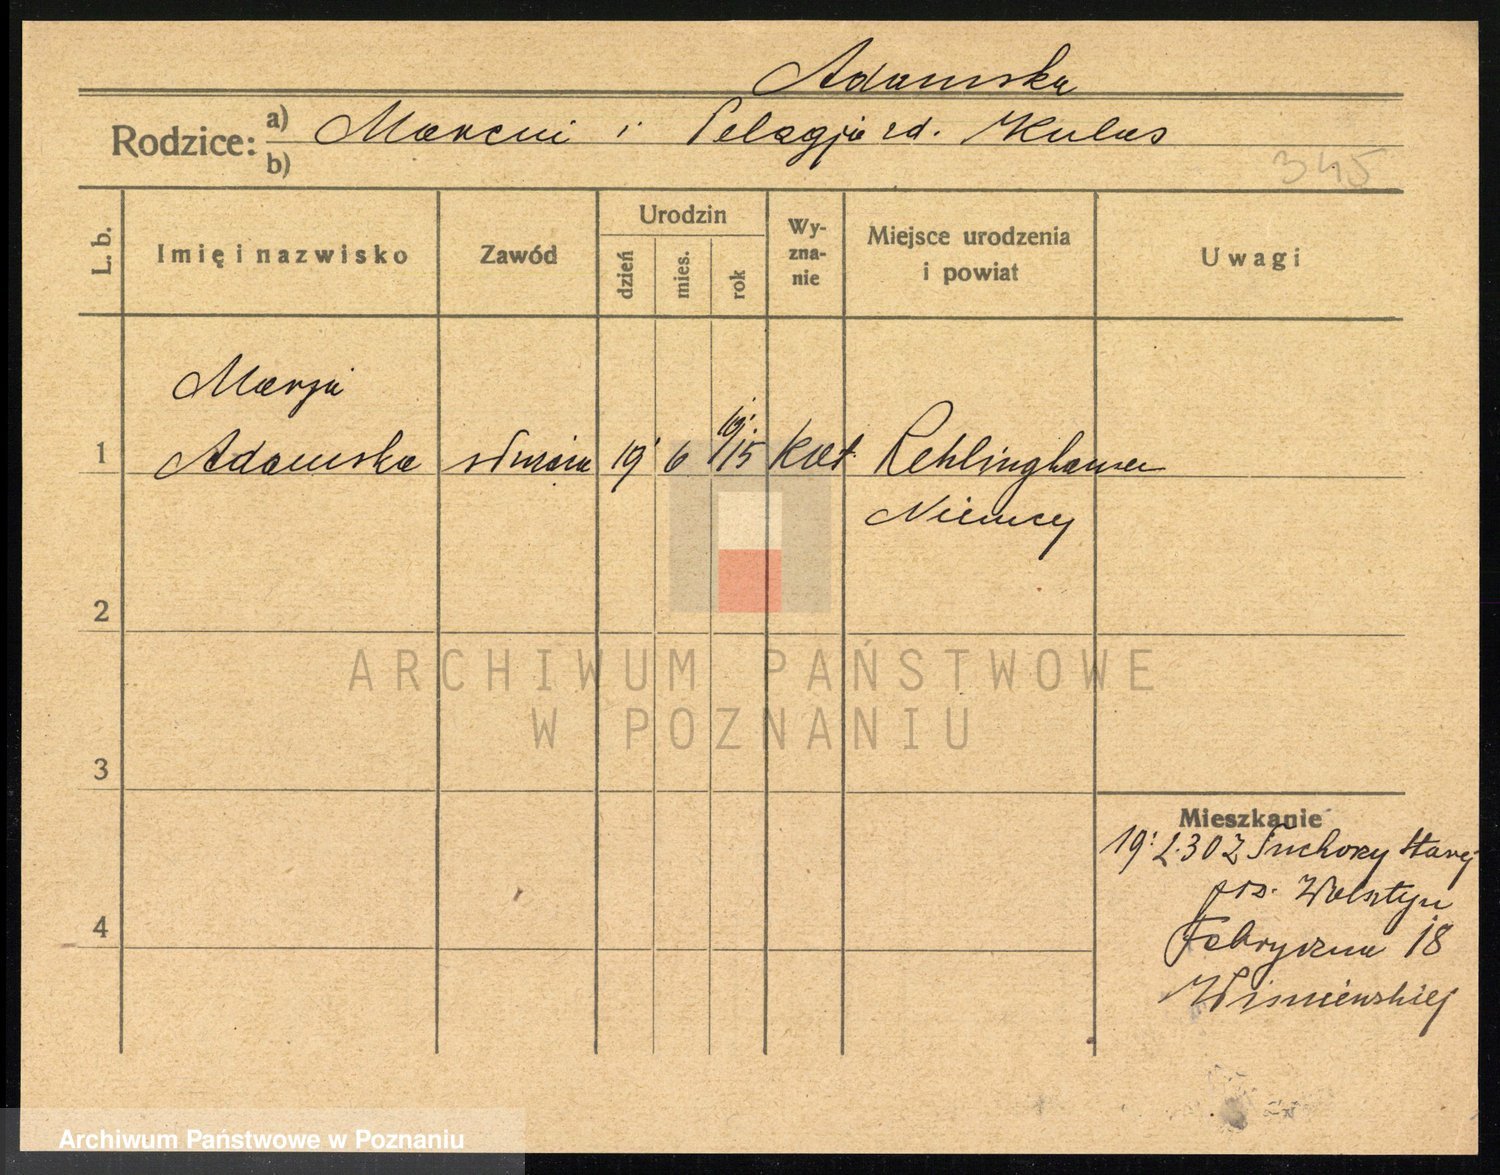 Adamska
Rodzice: a) Marcin i Pelagja zd. Kulus
b)
345
L. b.
Imię i nazwisko
Zawód
Urodzin
dzień
mies.
rok
Wy-
zna-
nie
Miejsce urodzenia
i powiat
Uwagi
Marja
1 Adamska 19 6 19/15 Kat. Reklinghausen
Niemcy
2
ARCHIWUM PAŃSTWOWE
W POZNANIU
3
Mieszkanie
19. 2. 30 z Tuchorzy Starej
pow. Wolsztyn
4
Fabryczna 18
Wiśniewskiej
Archiwum Państwowe w Poznaniu